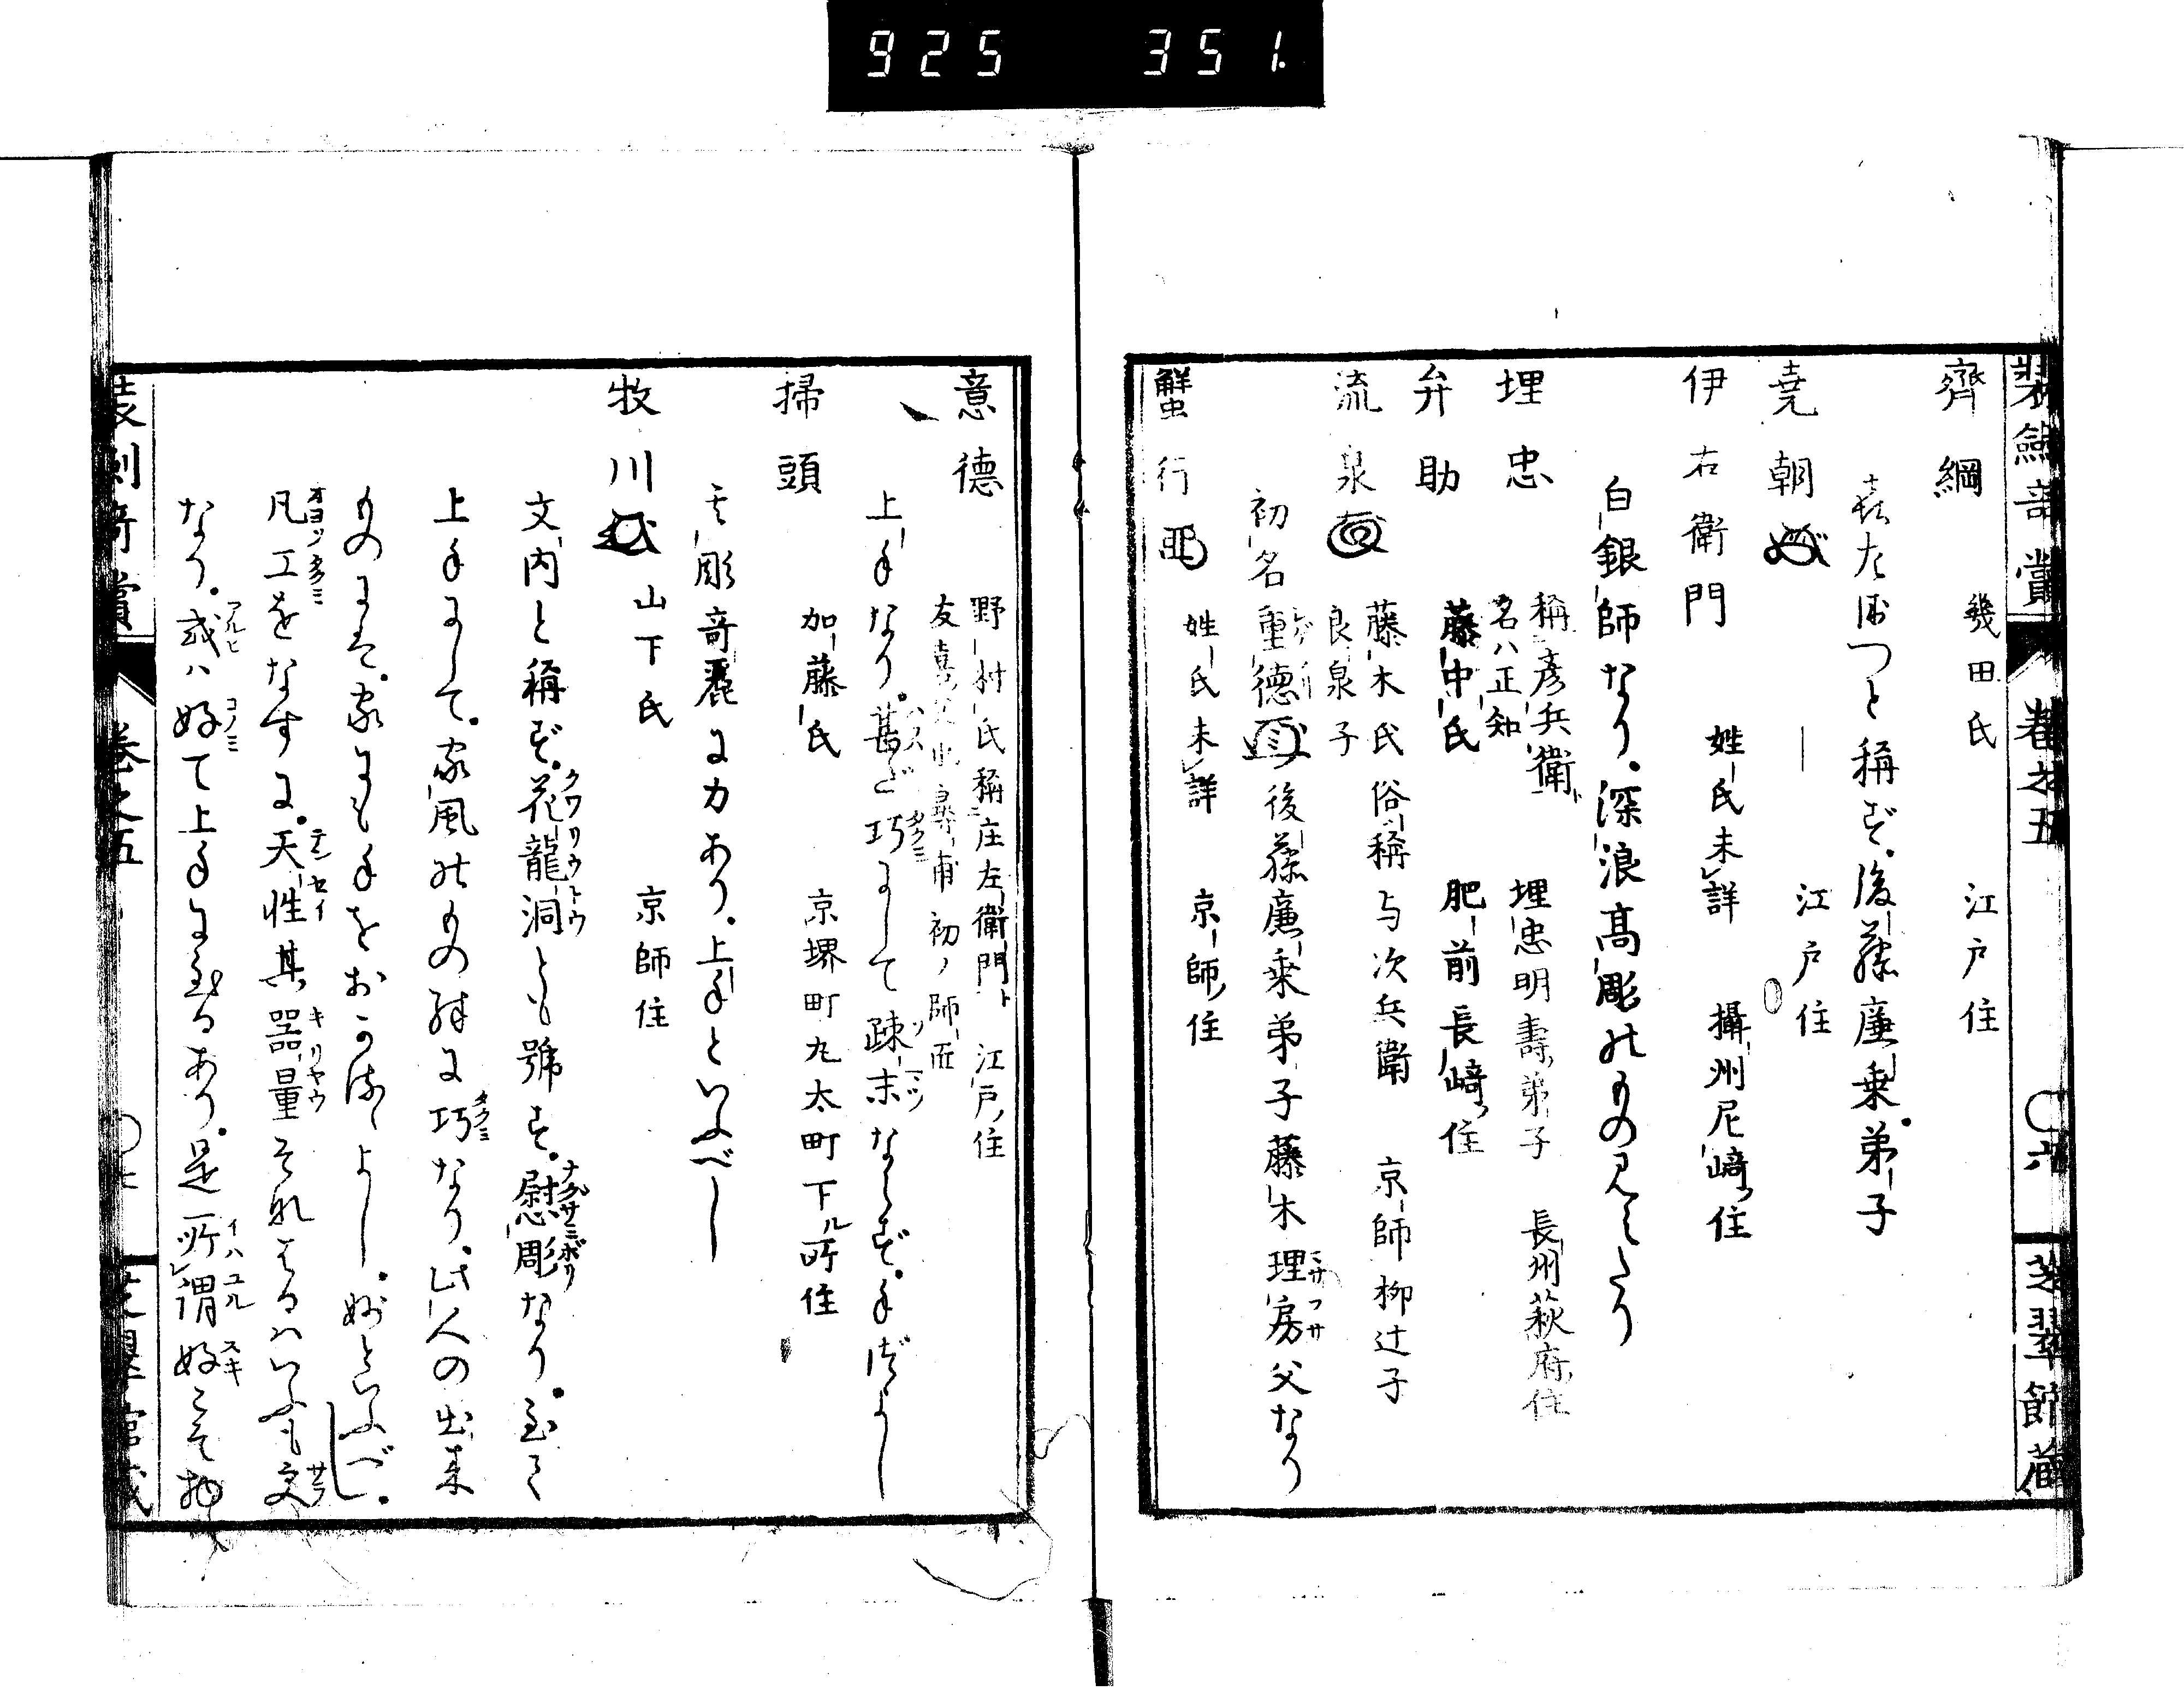 925 351
裝劍奇賞 卷之五 ○六
齊綱 幾田氏 江戸住
と稱ず。後藤廉乗。弟子
堯朝 江戸住
伊右衛門 姓氏未詳 攝州尼﨑住
白銀師なり。深浪髙彫のもの見へたり
埋忠 稱彦兵衛 名ハ正知 埋忠明壽弟子 長州萩府住
弁助 藤中氏 肥前長﨑住
流泉 藤木氏俗稱与次兵衛 良泉子 京師柳辻子
初名重德 後藤廉乗弟子藤木理房父なり
蟹行 姓氏未詳 京師住
意德 野村氏稱庄左衛門ト 江戸住
友喜父也 初ノ師匠
上手なり。甚だ巧にして疎末ならず。手際よし
掃頭 加藤氏 京堺町丸太町下ル所住
其彫奇麗に力あり。上手といふべし
牧川 山下氏 京師住
文内と稱ず。花龍洞とも號す。慰彫なり。至て
上手にして。家風のもの殊に巧なり。此人の出来
ものには。家にも手をおかるゝよし。妙といふべし。
凡工をなすに。天性其器量それなるハいふも更
なり。或ハ好て上手に至るあり。是所謂好こそ物
裝劍奇賞 卷之五 ○七